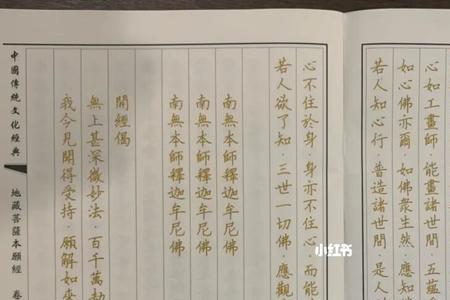 心如工畫師·能畫諸世間·五蘊
如心佛亦爾·如佛眾生然·應知
若人知心行·普造諸世間·是人
心不住於身·身亦不住心·而能
若人欲了知·三世一切佛·應觀
南無本師釋迦牟尼佛
南無本師釋迦牟尼佛
南無本師釋迦牟尼佛
開經偈
無上甚深微妙法·百千萬劫
我今見聞得受持·願解如來
中國傳統文化經典
地藏菩薩本願經
卷
小红书